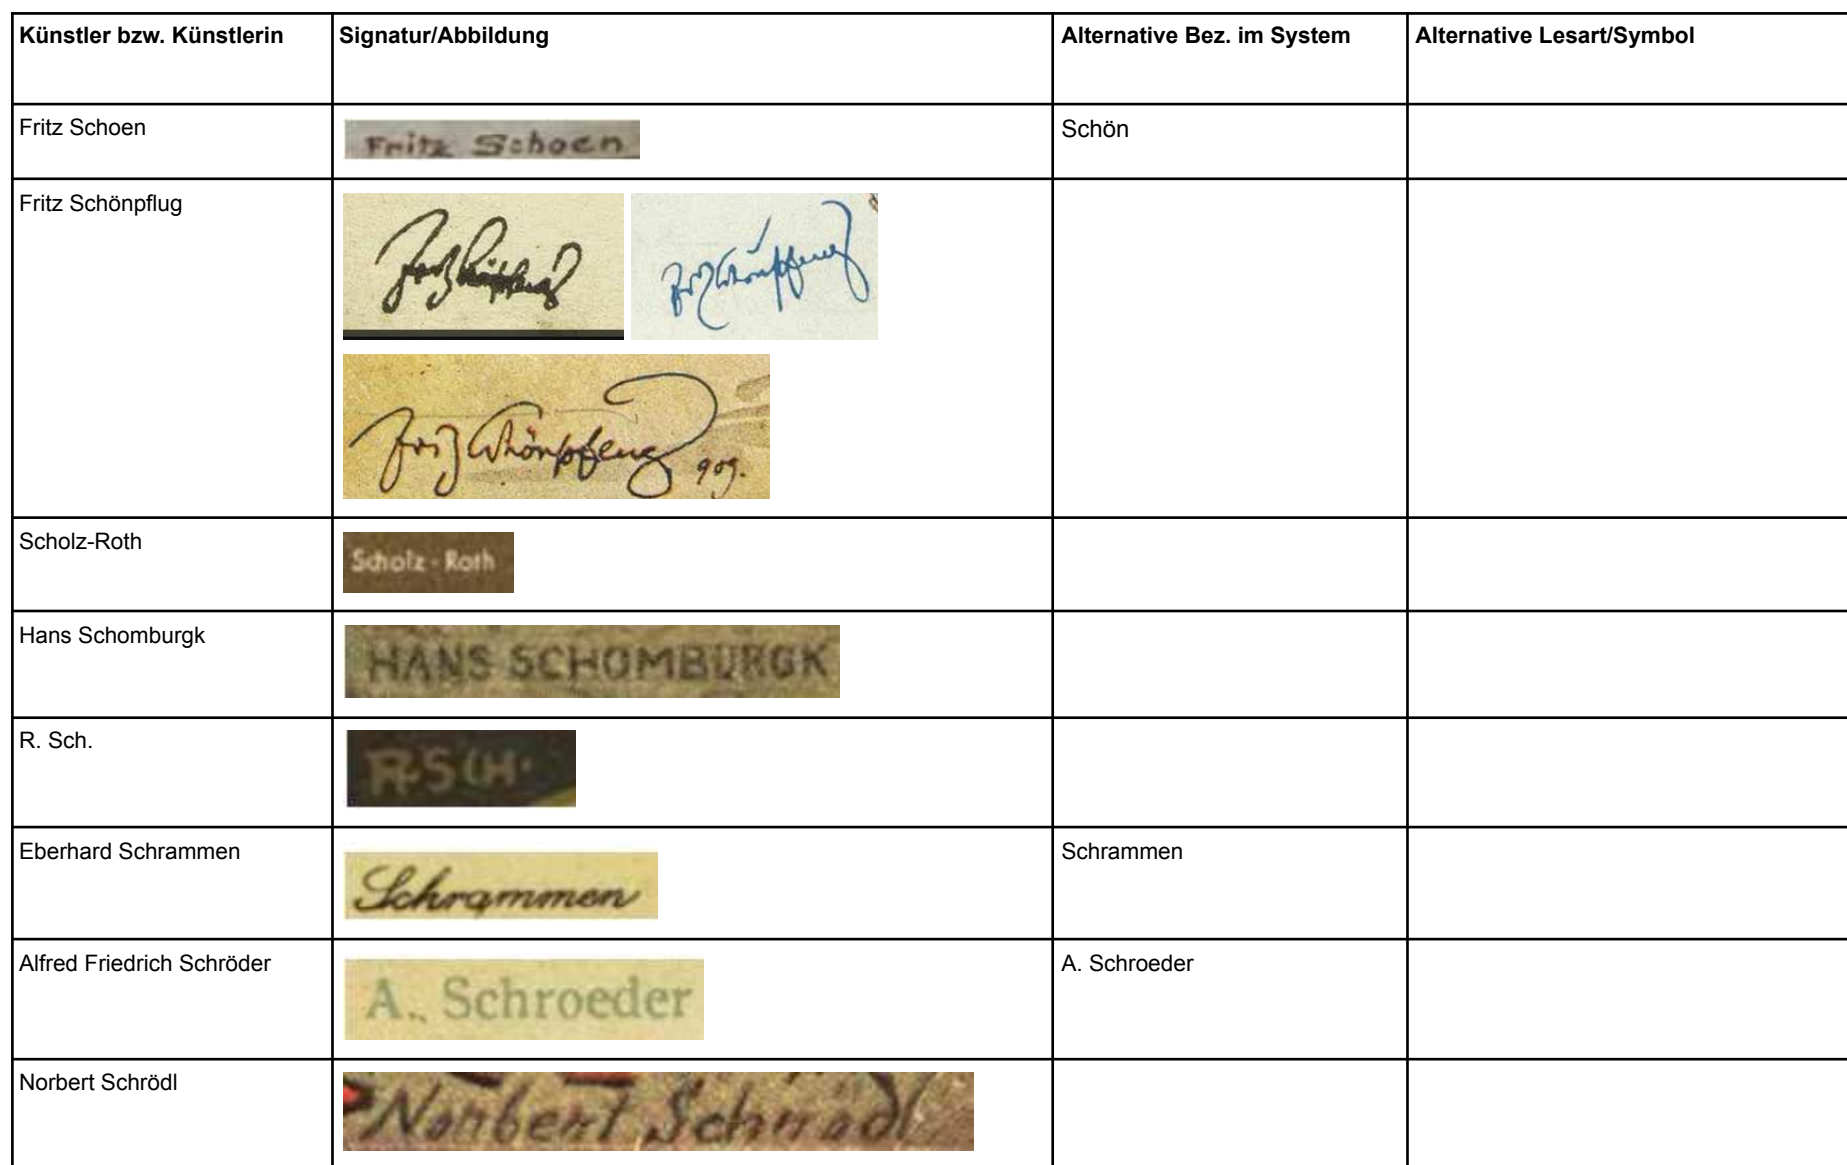 Künstler bzw. Künstlerin Signatur/Abbildung Alternative Bez. im System Alternative Lesart/Symbol
Fritz Schoen Fritz Schoen Schön
Fritz Schönpflug
Fritz Schönpflug Fritz Schönpflug
Fritz Schönpflug 909.
Scholz-Roth Scholz-Roth
Hans Schomburgk HANS SCHOMBURGK
R. Sch. R. SCH.
Eberhard Schrammen Schrammen Schrammen
Alfred Friedrich Schröder A. Schroeder A. Schroeder
Norbert Schrödl Norbert Schrödl